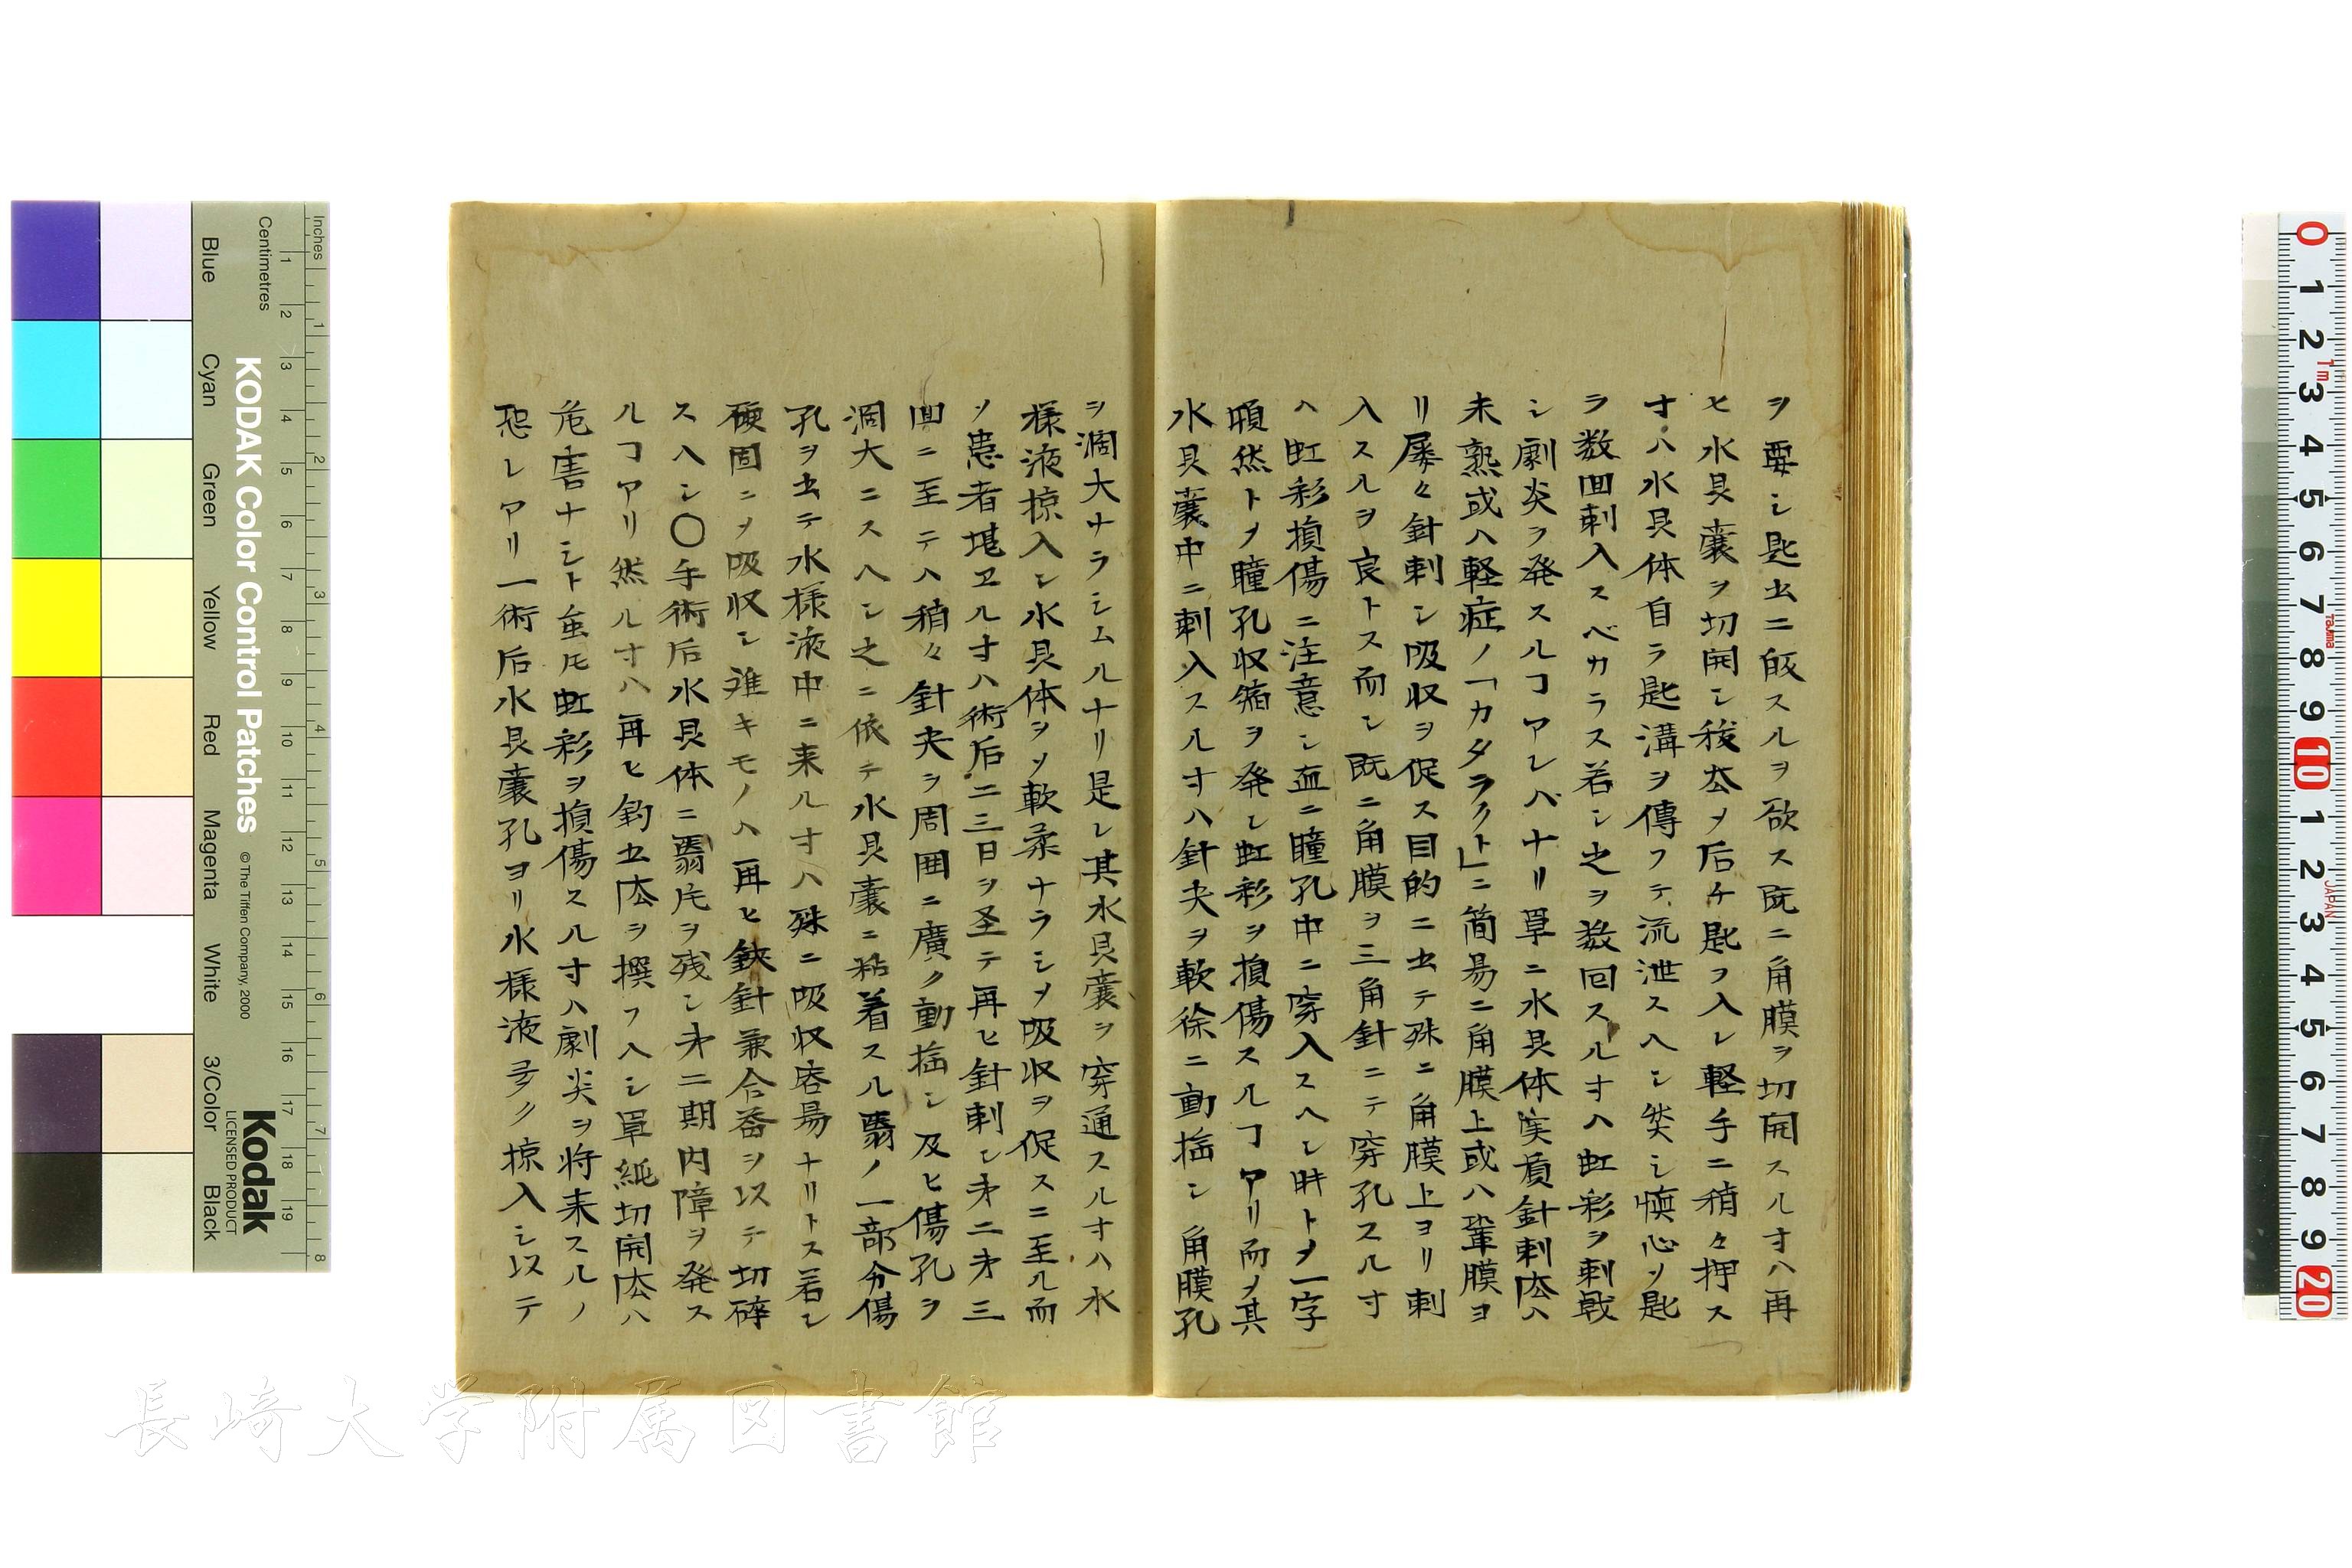 ヲ要シ匙出ニ皈スルヲ欲ス既ニ角膜ヲ切開スルオハ再
ヒ水晶嚢ヲ切開シ後チ匙ヲ入レ軽手ニ稍々押ス
オハ水晶体自ラ匙溝ヲ傳フテ流泄スヘシ然シ慎心ソ匙
ヲ数回刺入スベカラス若シ之ヲ数回スルオハ虹彩ヲ刺戟
シ劇炎ヲ発スルヿアレバナリ単ニ水晶体実質針刺法ハ
未熟或ハ軽症ノ「カタラクト」ニ簡易ニ角膜上或ハ鞏膜ヨ
リ屡々針刺シ吸収ヲ促ス目的ニ出テ殊ニ角膜上ヨリ刺
入スルヲ良トス而シ既ニ角膜ヲ三角針ニテ穿孔スルオ
ハ虹彩損傷ニ注意シ直ニ瞳孔中ニ穿入スヘシ時トメ一字
頓然トメ瞳孔収縮ヲ発シ虹彩ヲ損傷スルヿアリ而メ其
水晶嚢中ニ刺入スルオハ針尖ヲ軟徐ニ動揺シ角膜孔
ヲ濶大ナラシムルナリ是レ其水晶嚢ヲ穿通スルオハ水
様液掠入シ水晶体ヲソ軟柔ナラシメ吸収ヲ促スニ至ル而
ソ患者堪ヱルオハ術后二三日ヲ至テ再ヒ針刺シ才二才三
回ニ至テハ稍々針尖ヲ周囲ニ廣ク動揺シ及ヒ傷孔ヲ
濶大ニスヘシ之ニ依テ水晶嚢ニ粘着スル翳ノ一部分傷
孔ヲ出テ水様液中ニ来ルオハ殊ニ吸収容易ナリトス若シ
硬固ニメ吸収シ難キモノハ再ヒ鋏針兼合器ヲ以テ切碎
スヘシ〇手術后水晶体ニ翳片ヲ残シ才二期内障ヲ発ス
ルヿアリ然ルオハ再ヒ釣出法ヲ撰フヘシ単純切開法ハ
危害ナシト雖𪜈虹彩ヲ損傷スルオハ劇炎ヲ将来スルノ
恐レアリ一術后水晶嚢孔ヨリ水様液多ク掠入シ以テ
KODAK Color Control Patches
© The Tiffen Company, 2000
Kodak
LICENSED PRODUCT
Inches
Centimetres
Blue
Cyan
Green
Yellow
Red
Magenta
White
3/Color
Black
長崎大学附属図書館